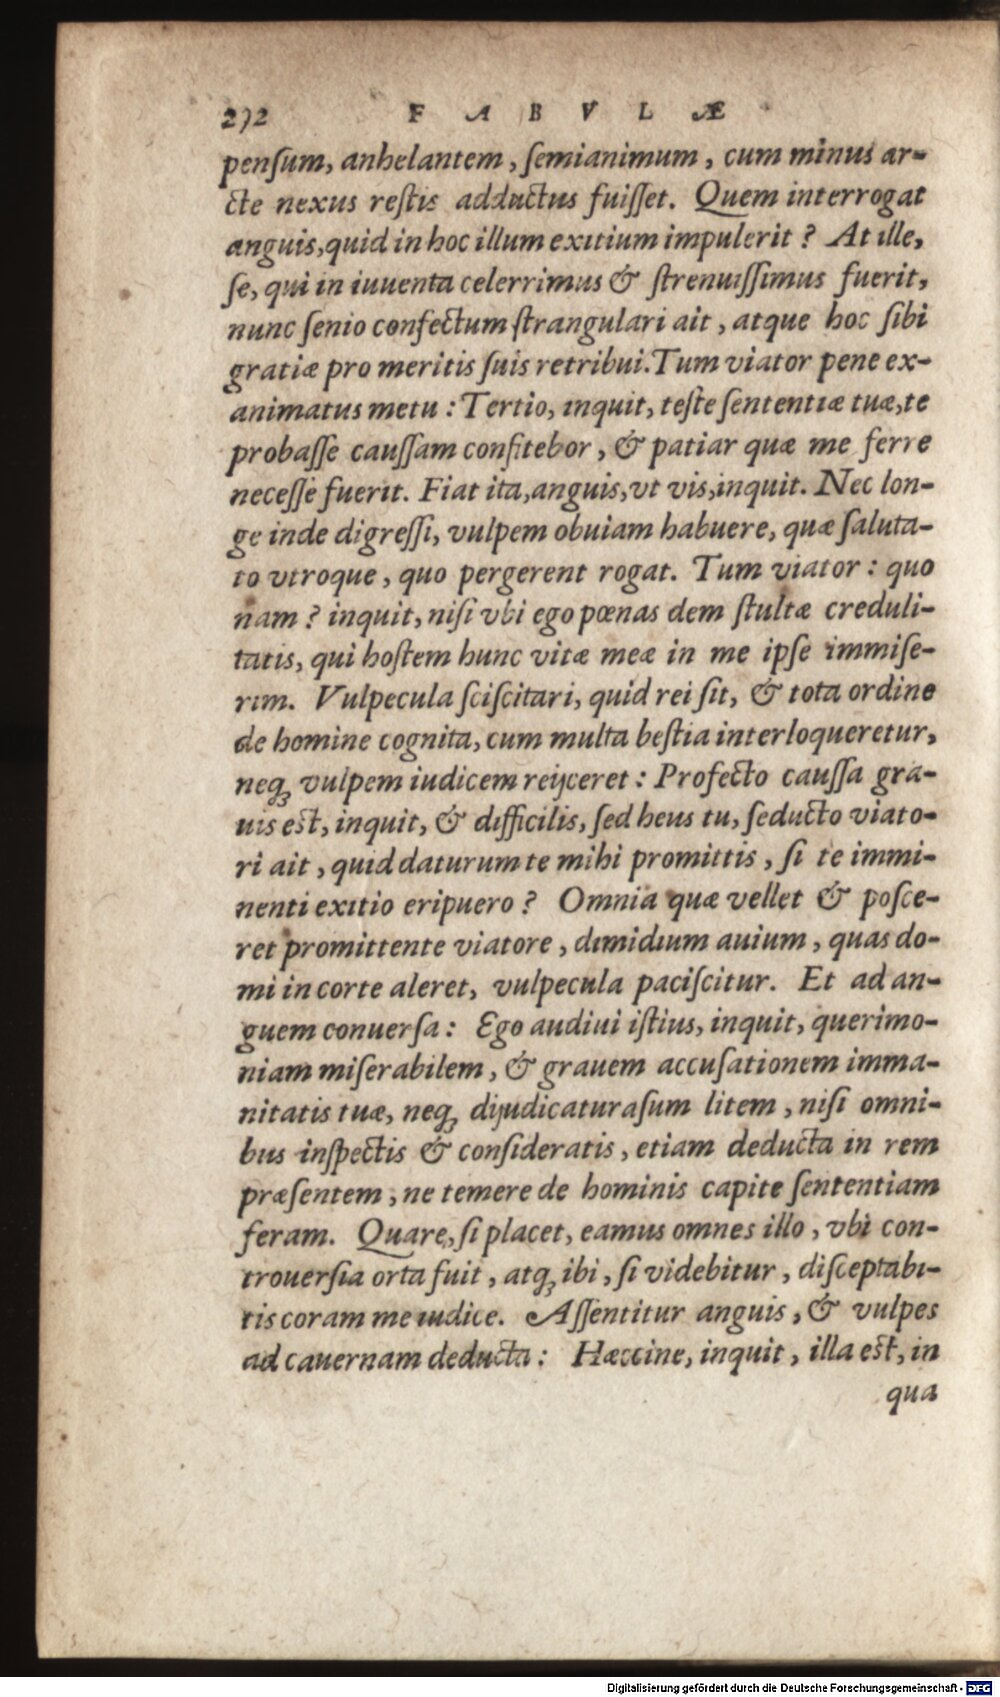 272 F A B V L Æ
penſum, anhelantem, ſemianimum, cum minus ar-
cte nexus reſtis adductus fuiſſet. Quem interrogat
anguis, quid in hoc illum exitium impulerit? At ille,
ſe, qui in iuuenta celerrimus & ſtrenuiſſimus fuerit,
nunc ſenio confectum ſtrangulari ait, atque hoc ſibi
gratiæ pro meritis ſuis retribui. Tum viator pene ex-
animatus metu: Tertio, inquit, teſte ſententiæ tuæ, te
probaſſe cauſſam confitebor, & patiar quæ me ferre
neceſſe fuerit. Fiat ita, anguis, vt vis, inquit. Nec lon-
ge inde digreſſi, vulpem obuiam habuere, quæ ſaluta-
to vtroque, quo pergerent rogat. Tum viator: quo
nam? inquit, niſi vbi ego pœnas dem ſtultæ creduli-
tatis, qui hoſtem hunc vitæ meæ in me ipſe immiſe-
rim. Vulpecula ſciſcitari, quid rei ſit, & tota ordine
de homine cognita, cum multa beſtia interloqueretur,
neqꝫ vulpem iudicem reijceret: Profecto cauſſa gra-
uis est, inquit, & difficilis, ſed heus tu, ſeducto viato-
ri ait, quid daturum te mihi promittis, ſi te immi-
nenti exitio eripuero? Omnia quæ vellet & poſce-
ret promittente viatore, dimidium auium, quas do-
mi in corte aleret, vulpecula paciſcitur. Et ad an-
guem conuerſa: Ego audiui iſtius, inquit, querimo-
niam miſerabilem, & grauem accuſationem imma-
nitatis tuæ, neqꝫ dijudicatura ſum litem, niſi omni-
bus inſpectis & conſideratis, etiam deducta in rem
præſentem, ne temere de hominis capite ſententiam
feram. Quare, ſi placet, eamus omnes illo, vbi con-
trouerſia orta fuit, atqꝫ ibi, ſi videbitur, diſceptabi-
tis coram me iudice. Aſſentitur anguis, & vulpes
ad cauernam deducta: Hæccine, inquit, illa est, in
qua
Digitalisierung gefördert durch die Deutsche Forschungsgemeinschaft - DFG